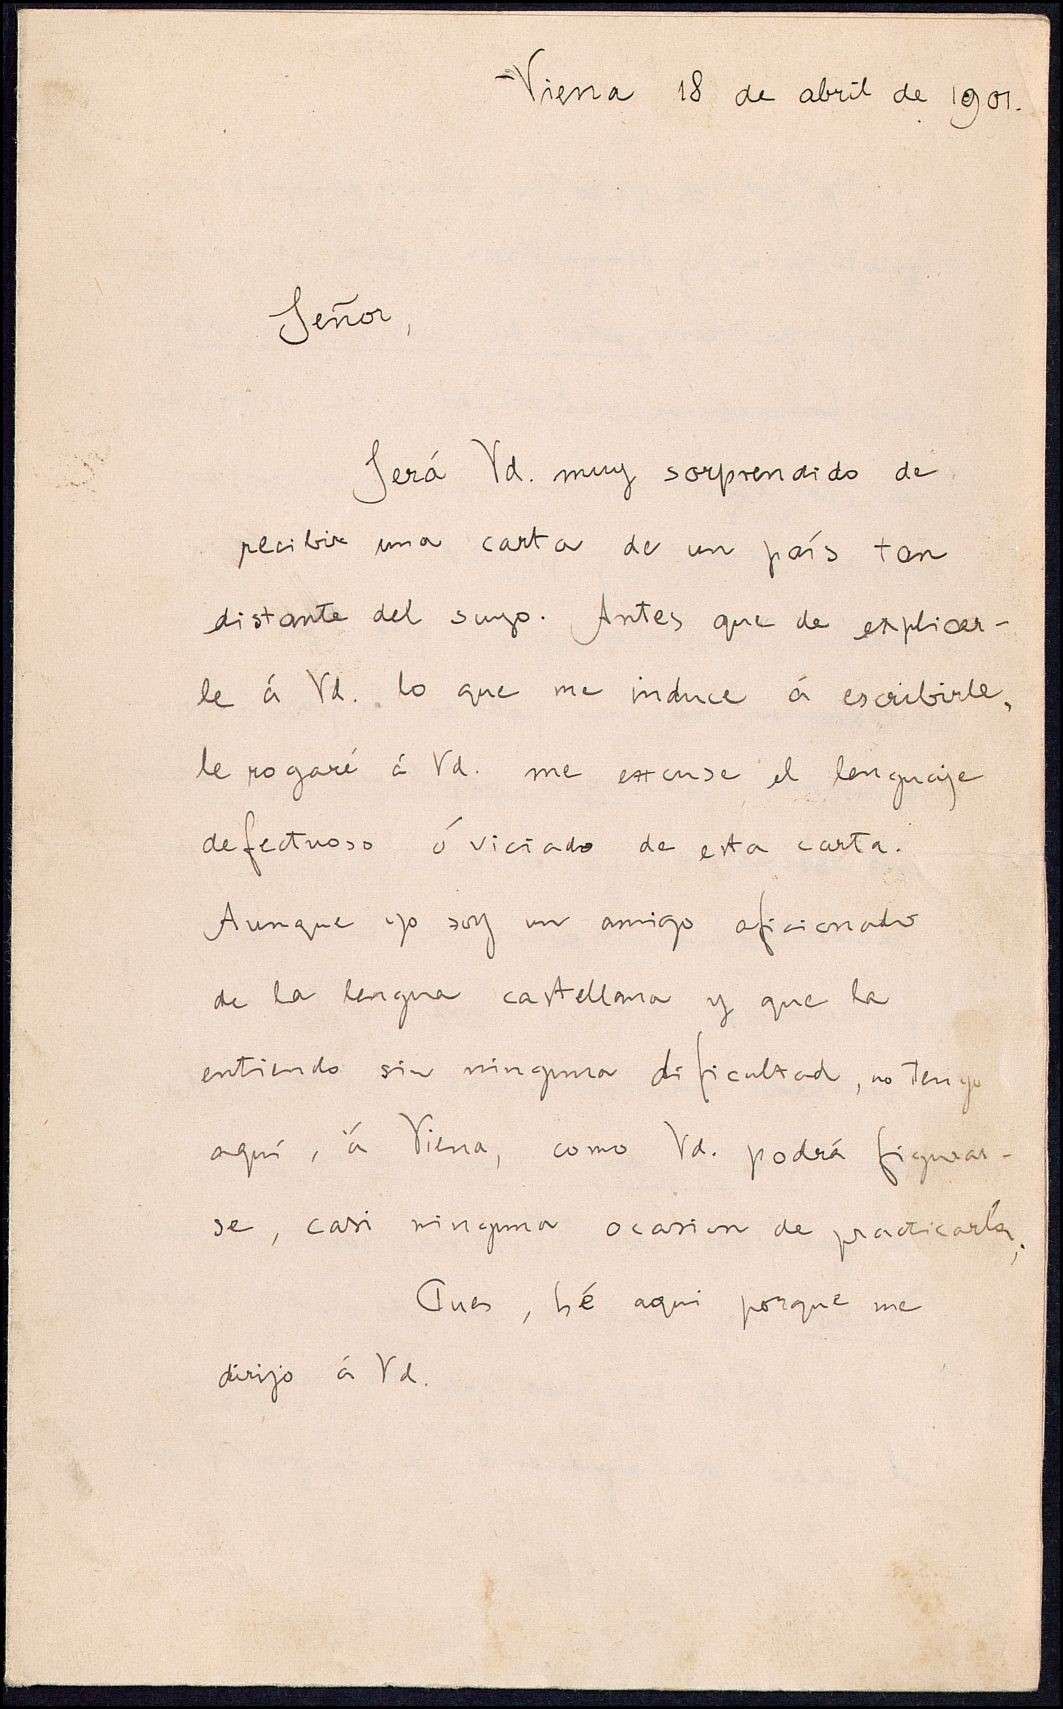 Viena 18 de abril de 1901.
Señor,
Será Vd. muy sorprendido de
recibir una carta de un país tan
distante del suyo. Antes que de explicar-
le á Vd. lo que me induce á escribirle,
le rogaré á Vd. me excuse el lenguaje
defectuoso ó viciado de esta carta.
Aunque yo soy un amigo aficionado
de la lengua castellana y que la
entiendo sin ninguna dificultad, no tengo
aquí, á Viena, como Vd. podrá figurar-
se, casi ninguna ocasion de practicarla;
Pues, hé aqui porque me
dirijo á Vd.